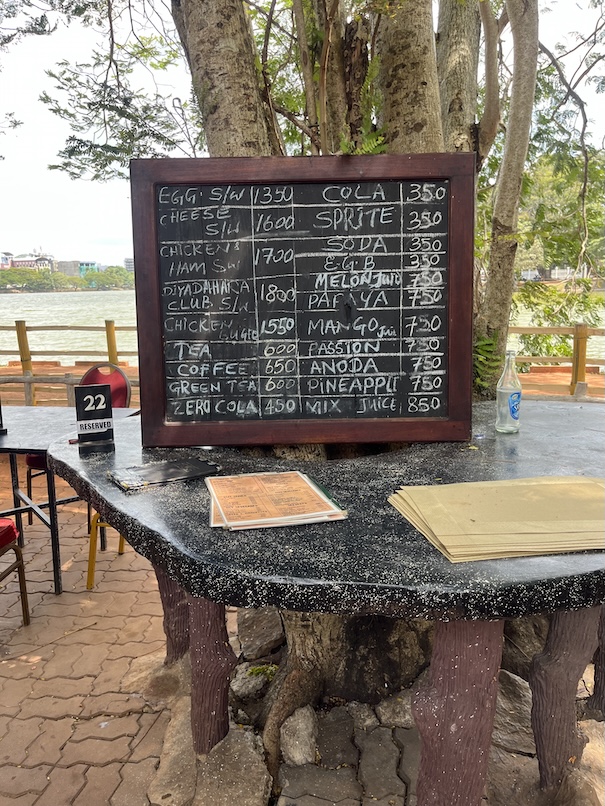 EGG. S/W 1350
CHEESE
S/W 1600
CHICKEN &
HAM SW 1700
DIYADAHARA
CLUB. S/W 1800
CHICKEN 1550
TEA 600
COFFEE 650
GREEN TEA 600
ZERO COLA 450
COLA 350
SPRITE 350
SODA 350
E.G.B 350
MELON JUIC 750
PAPAYA 750
MANGO Juic 750
PASSION 750
ANODA 750
PINEAPPLE 750
MIX JUICE 850
22
RESERVED